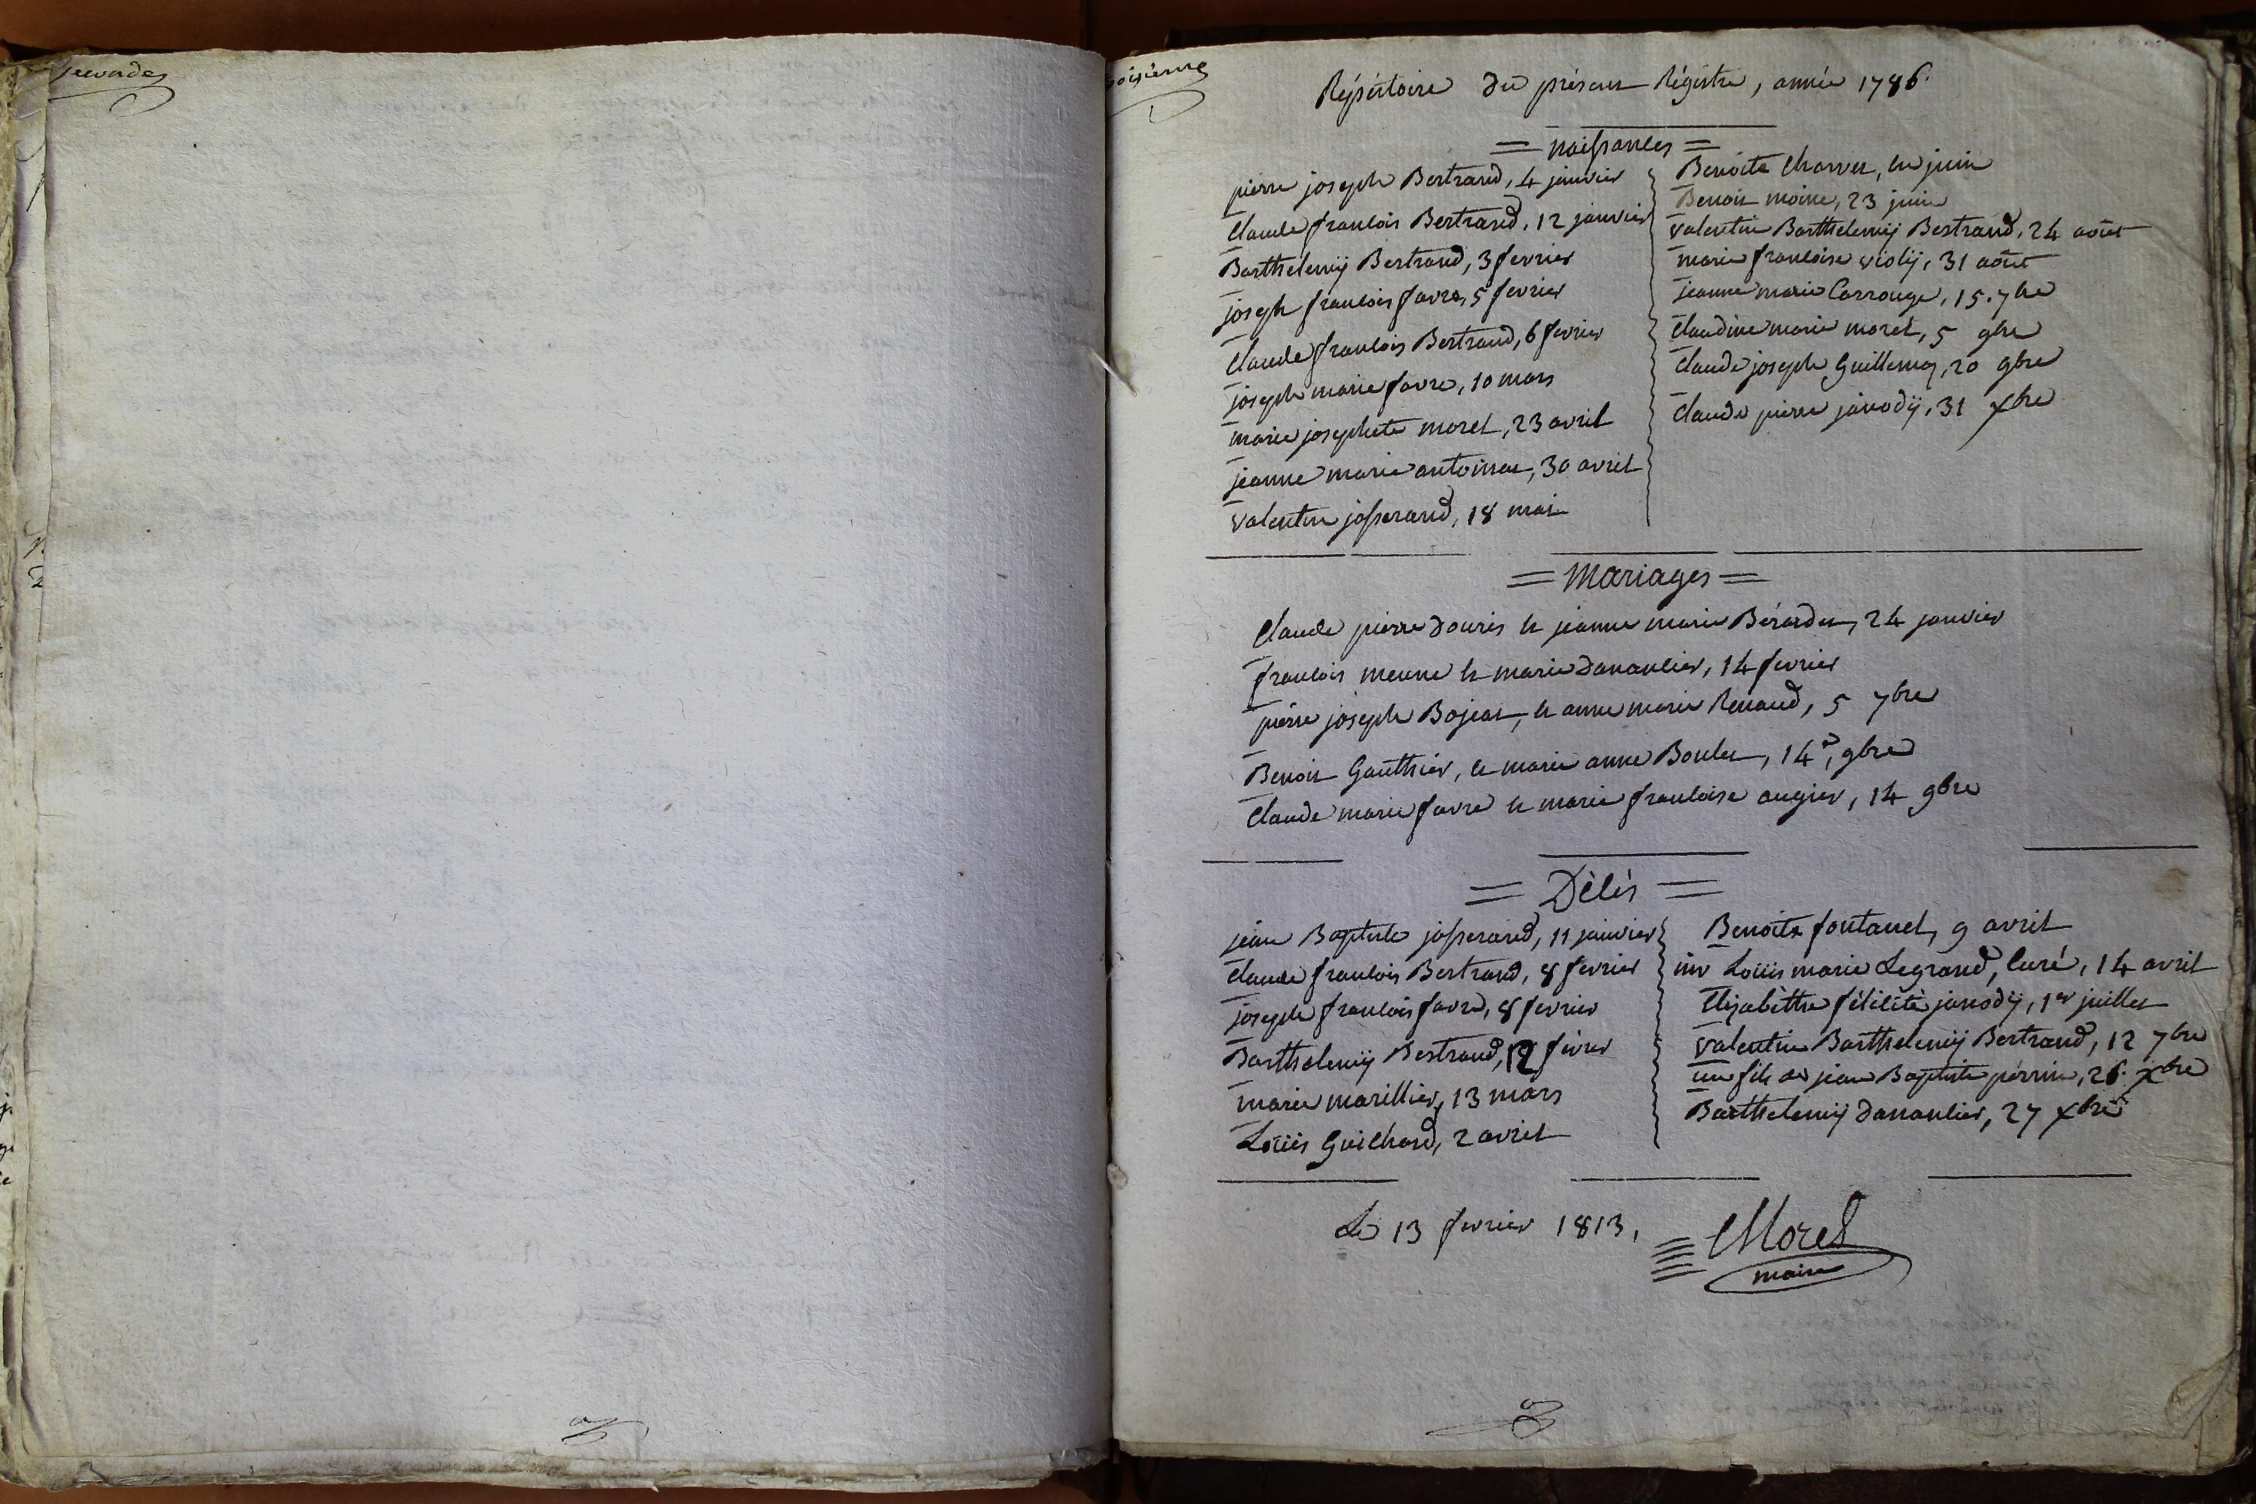 seconde
troisieme
Répértoire du présent Régistre, année 1786.
= naissances =
pierre joseph Bertrand, 4 janvier
Claude francois Bertrand, 12 janvier
Barthelemÿ Bertrand, 3 fevrier
joseph francois favre, 5 fevrier
Claude francois Bertrand, 6 fevrier
joseph marie favre, 10 mars
marie josephete morel, 23 avril
jeanne marie antoinat, 30 avril
valentin josserand, 18 mai
Benoite Charvet, en juin
Benoit moine, 23 juin
valentin Barthelemÿ Bertrand, 24 août
marie francoise violÿ, 31 août
jeanne marie Carrouge, 15. 7bre
Claudine marie morel, 5 9bre
Claude joseph Guillemot, 20 9bre
Claude pierre janodÿ, 31 xbre
= Mariages =
Claude pierre douris et jeanne marie Bérardet, 24 janvier
francois meune et marie danancier, 14 fevrier
pierre joseph Bojeat, et anne marie Renaud, 5 7bre
Benoit Gauthier, et marie anne Boulet, 14 d, 9bre
Claude marie favre et marie francoise augier, 14 9bre
= Décès =
jean Baptiste josserand, 11 janvier
Claude francois Bertrand, 8 fevrier
joseph francois favre, 8 fevrier
Barthelemÿ Bertrand, 12 fevrier
marie marillier, 13 mars
Loüis Guichard, 2 avril
Benoite fontanel, 9 avril
Loüis marie Legrand, Curé, 14 avril
Elizabéthe félicité janodÿ, 1er juillet
valentin Barthelemÿ Bertrand, 12 7bre
un fils de jean Baptiste perrin, 26. xbre
Barthelemÿ danancier, 27 xbre
Le 13 fevrier 1813,
Morel
maire